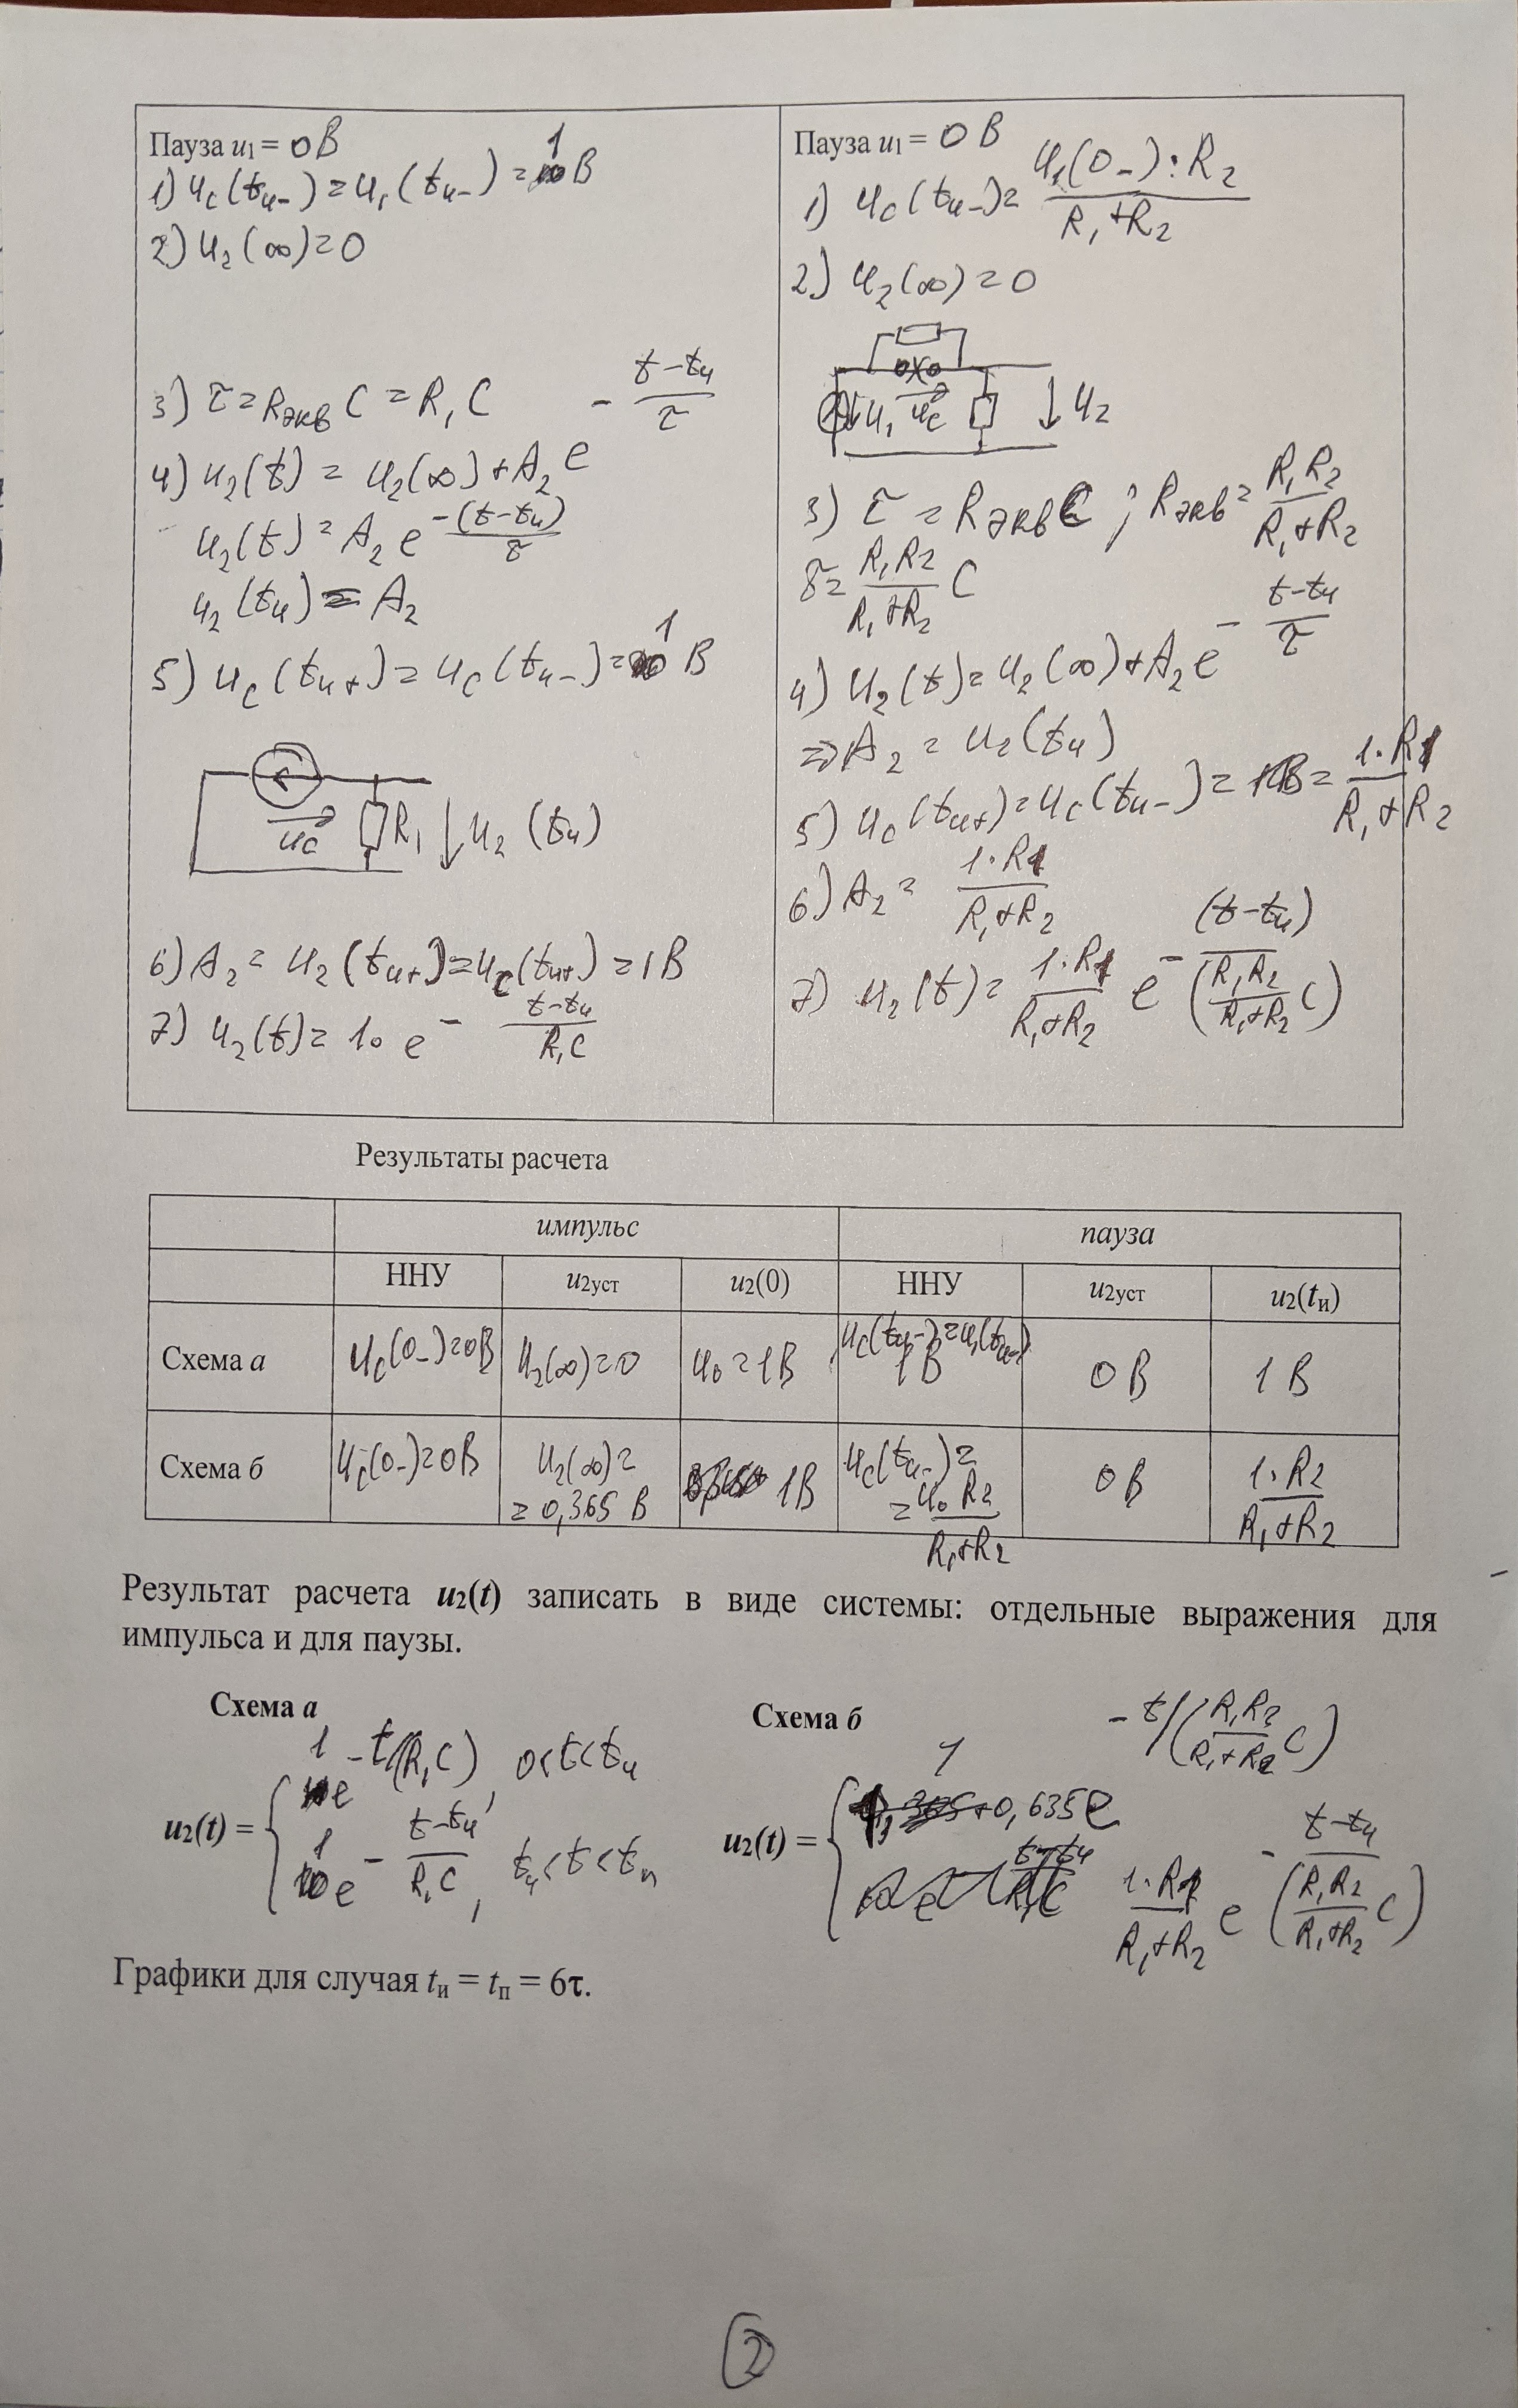 Пауза u₁ = 0 В
1) u_c(t_и-) = u₁(t_и-) = 1 В
2) u₂(∞) = 0
3) τ = R_экв C = R₁C
4) u₂(t) = u₂(∞) + A₂ e^(-(t-t_и)/τ)
u₂(t) = A₂ e^(-(t-t_и)/τ)
u₂(t_и) = A₂
5) u_c(t_и+) = u_c(t_и-) = 1 В
u_c R₁ u₂(t_и)
6) A₂ = u₂(t_и+) = u_c(t_и+) = 1 В
7) u₂(t) = 1 · e^(-(t-t_и)/(R₁C))
Пауза u₁ = 0 В
1) u_c(t_и-) = u₁(0_-) · R₂ / (R₁+R₂)
2) u₂(∞) = 0
u₁ u_c u₂
3) τ = R_экв C ; R_экв = R₁R₂ / (R₁+R₂)
τ = R₁R₂ / (R₁+R₂) C
4) u₂(t) = u₂(∞) + A₂ e^(-(t-t_и)/τ)
=> A₂ = u₂(t_и)
5) u_c(t_и+) = u_c(t_и-) = 1·R1 / (R₁+R₂)
6) A₂ = 1·R1 / (R₁+R₂)
7) u₂(t) = 1·R1 / (R₁+R₂) e^(-(t-t_и) / (R₁R₂/(R₁+R₂) C))
Результаты расчета
импульс пауза
ННУ u₂уст u₂(0) ННУ u₂уст u₂(tи)
Схема а u_c(0_-) = 0В u₂(∞) = 0 u₀ = 1В u_c(t_и-) = u₁(t_и-) 1 В 0 В 1 В
Схема б u_c(0_-) = 0В u₂(∞) = = 0,365 В 1В u_c(t_и-) = = u₀ R₂ / (R₁+R₂) 0 В 1·R₂ / (R₁+R₂)
Результат расчета u₂(t) записать в виде системы: отдельные выражения для
импульса и для паузы.
Схема а
u₂(t) =
1 e^(-t/(R₁C)), 0<t<t_и
1 e^(-(t-t_и)/(R₁C)), t_и<t<t_п
Схема б
u₂(t) =
1 0,635 e^(-t/(R₁R₂/(R₁+R₂) C))
1·R1 / (R₁+R₂) e^(-(t-t_и) / (R₁R₂/(R₁+R₂) C))
Графики для случая tи = tп = 6τ.
2